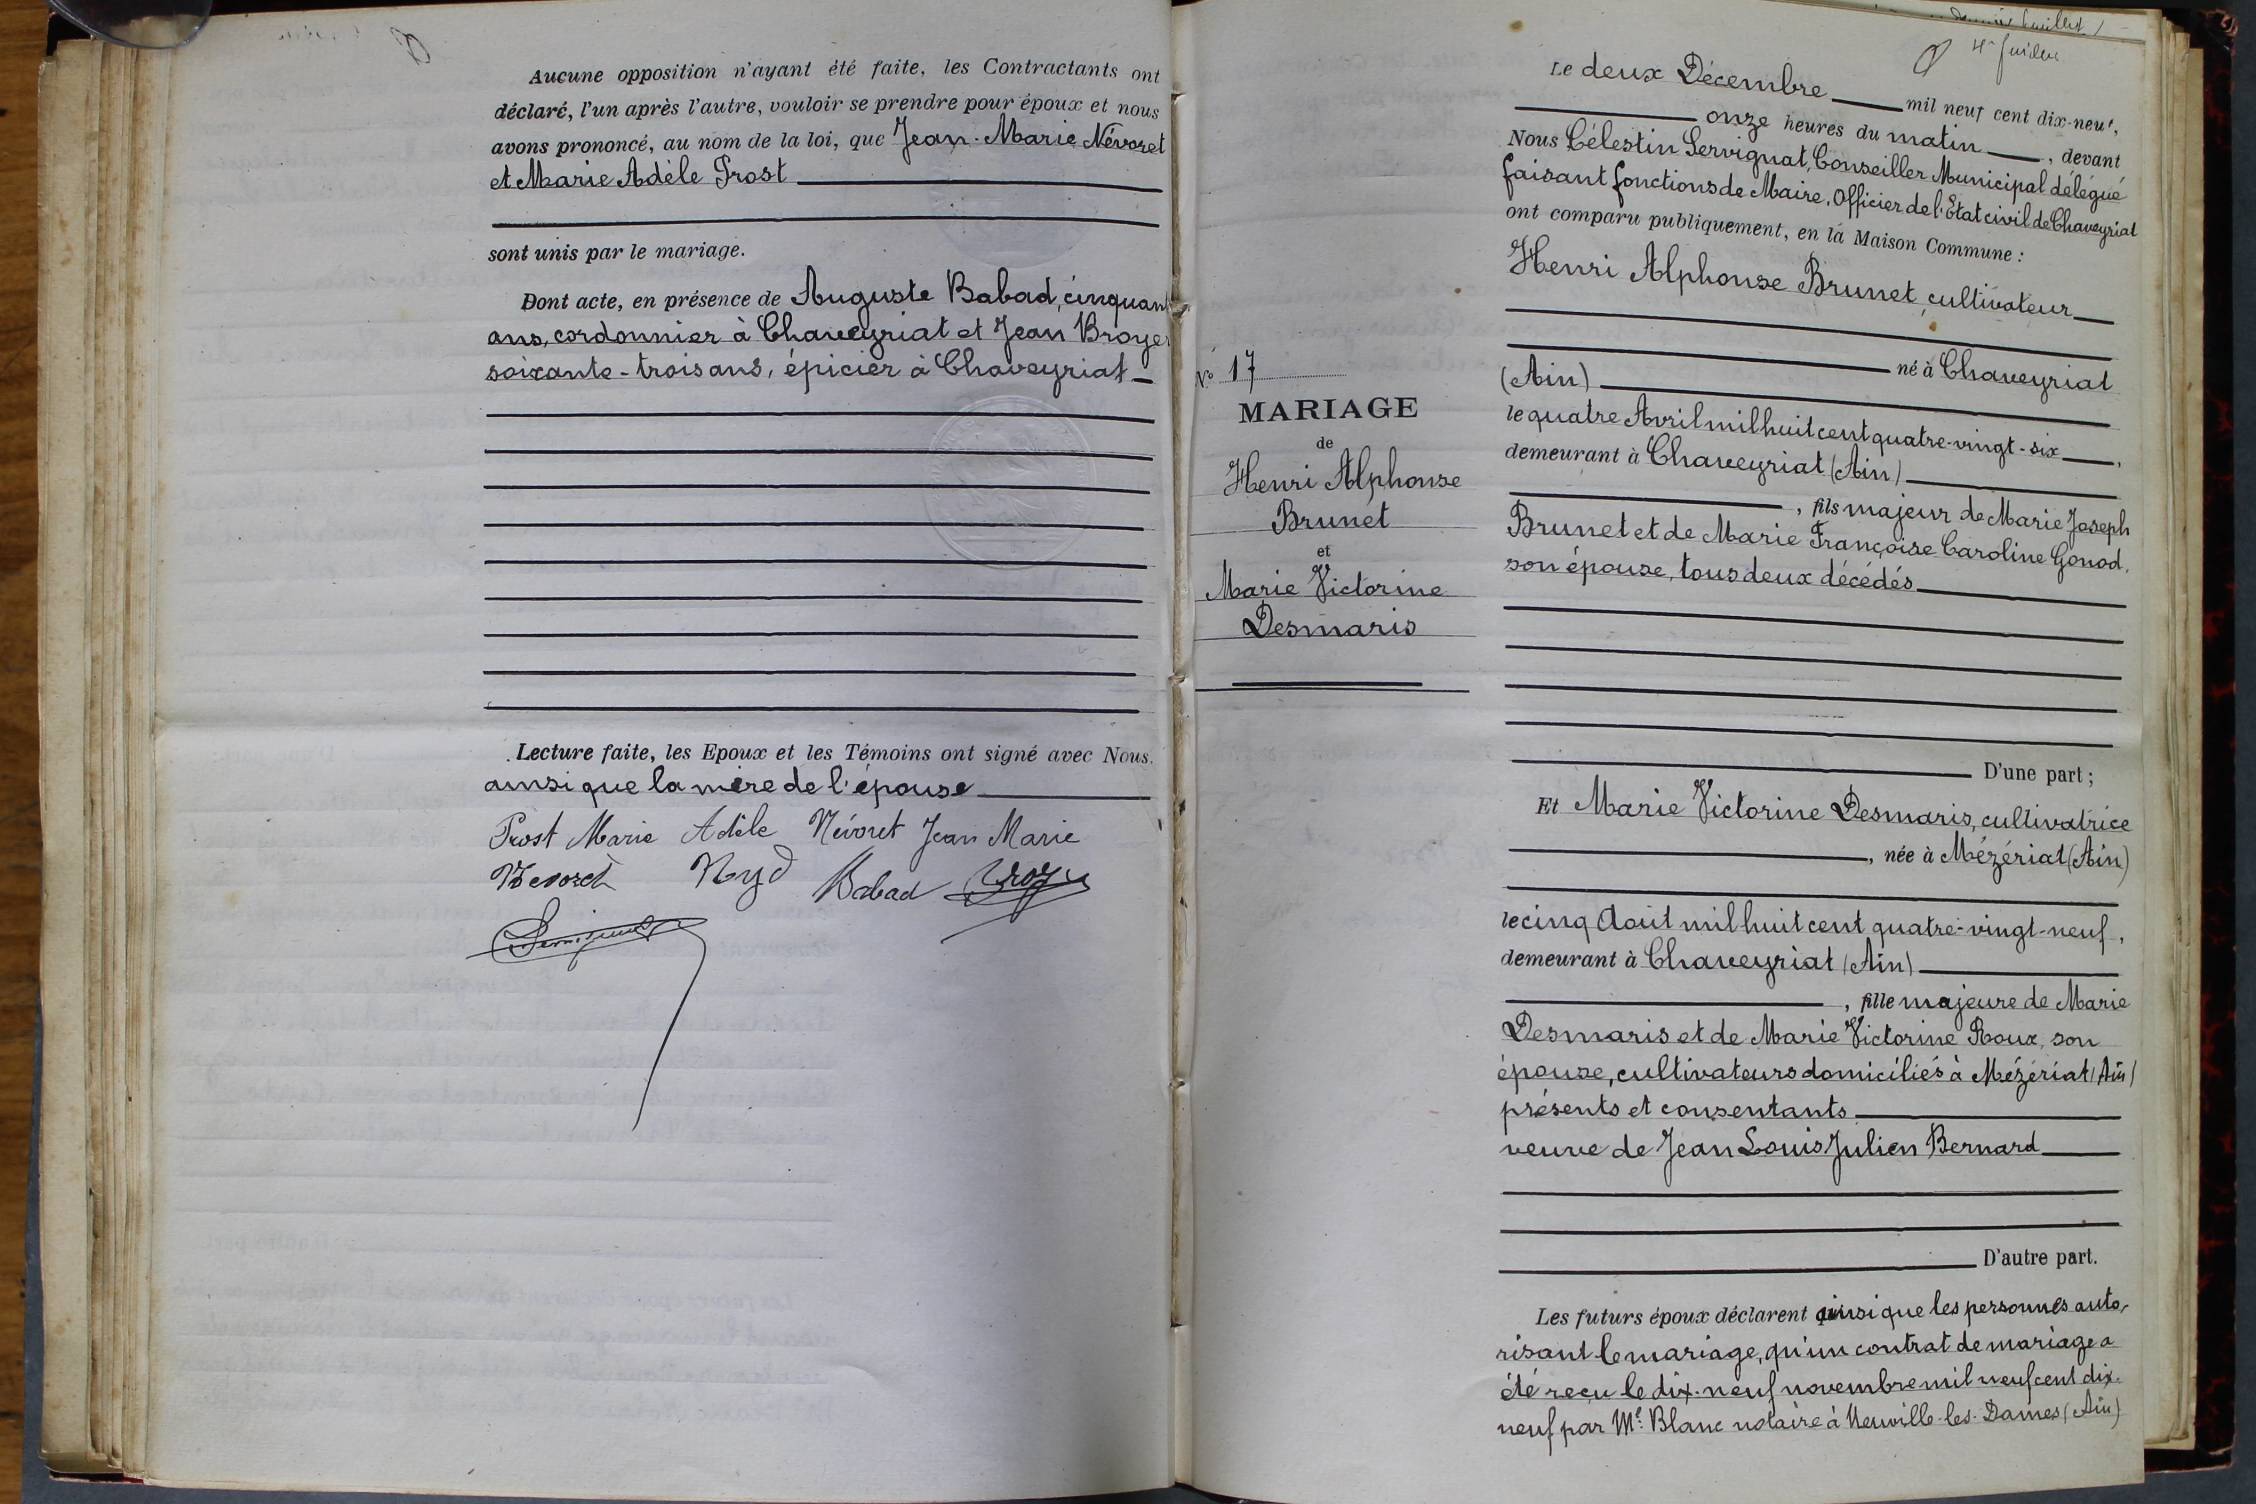 Aucune opposition n'ayant été faite, les Contractants ont
déclaré, l'un après l'autre, vouloir se prendre pour époux et nous
avons prononcé, au nom de la loi, que Jean-Marie Névoret
et Marie Adèle Prost
sont unis par le mariage.
Dont acte, en présence de Auguste Babad, cinquant
ans, cordonnier à Chaveyriat et Jean Broye
soixante-trois ans, épicier à Chaveyriat
Lecture faite, les Epoux et les Témoins ont signé avec Nous.
ainsi que la mère de l'épouse
Prost Marie Adèle Névoret Jean Marie
Nevoret Babad
4e feuillet
Le deux Décembre mil neuf cent dix-neuf,
onze heures du matin, devant
Nous Célestin Servignat, Conseiller Municipal délégué
faisant fonctions de Maire, Officier de l'Etat civil de Chaveyriat
ont comparu publiquement, en la Maison Commune :
Henri Alphonse Brunet, cultivateur
né à Chaveyriat
(Ain)
le quatre Avril mil huit cent quatre-vingt-six,
demeurant à Chaveyriat (Ain)
, fils majeur de Marie Joseph
Brunet et de Marie Françoise Caroline Gonod,
son épouse, tous deux décédés
D'une part ;
Et Marie Victorine Desmaris, cultivatrice
, née à Mézériat (Ain)
le cinq Août mil huit cent quatre-vingt-neuf,
demeurant à Chaveyriat (Ain)
, fille majeure de Marie
Desmaris et de Marie Victorine Roux, son
épouse, cultivateurs domiciliés à Mézériat (Ain)
présents et consentants
veuve de Jean Louis Julien Bernard
D'autre part.
Les futurs époux déclarent ainsi que les personnes auto-
risant le mariage, qu'un contrat de mariage a
été reçu le dix-neuf novembre mil neuf cent dix-
neuf par Me Blanc notaire à Neuville-les-Dames (Ain)
No 17
MARIAGE
de
Henri Alphonse
Brunet
et
Marie Victorine
Desmaris